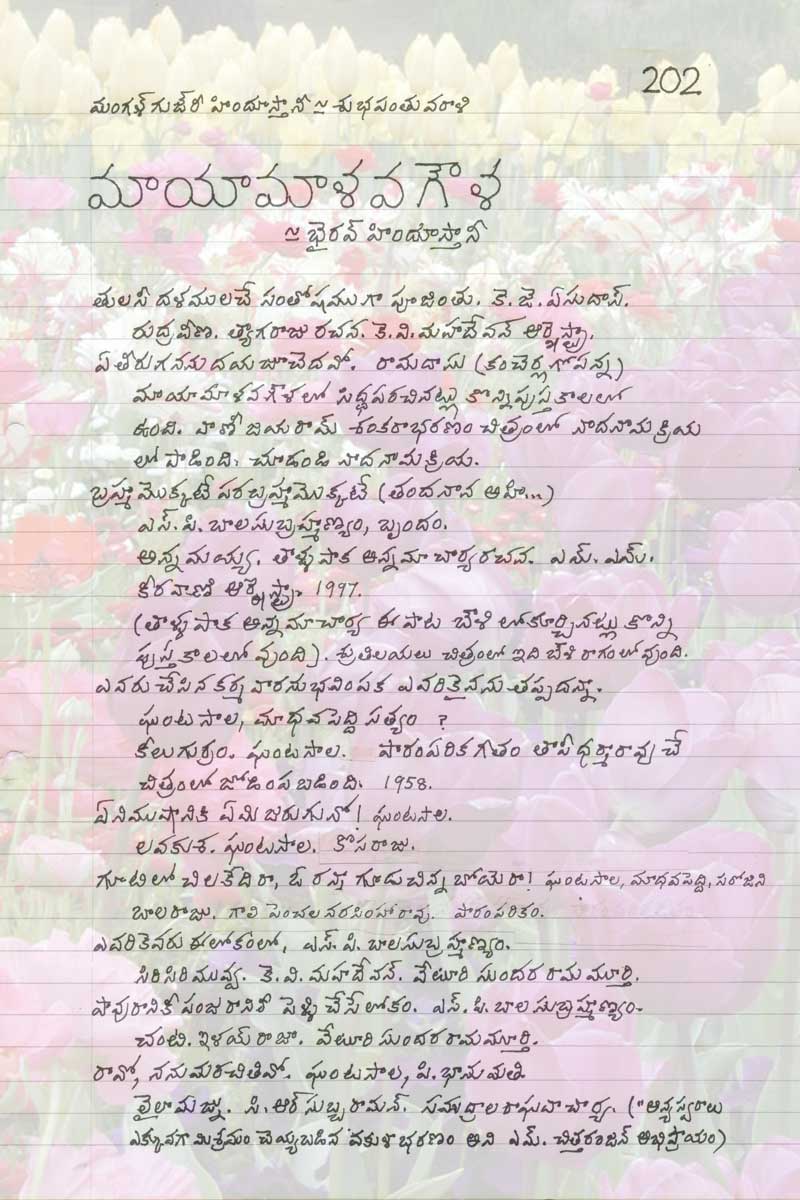 202
మంగళ్ గుజ్రీ హిందూస్తానీ ~ శుభపంతువరాళి
మాయామాళవగౌళ
~ భైరవ్ హిందూస్తానీ
తులసీ దళములచే సంతోషముగా పూజింతు. కె. జె. ఏసుదాస్.
రుద్రవీణ. త్యాగరాజు రచన. కె. వి. మహాదేవన్ ఆర్కెస్ట్రా.
ఏతీరుగ నను దయజూచెదవో. రామదాసు (కంచెర్ల గోపన్న)
మాయామాళవగౌళలో సిద్ధపరచినట్లు కొన్ని పుస్తకాలలో
ఉంది. వాణీ జయరామ్ శంకరాభరణం చిత్రంలో నాదనామక్రియ
లో పాడింది. చూడండి నాదనామక్రియ.
బ్రహ్మమొక్కటే పరబ్రహ్మమొక్కటే (తందనాన ఆహి...)
ఎస్. పి. బాలసుబ్రహ్మణ్యం, బృందం.
అన్నమయ్య. తాళ్ళపాక అన్నమాచార్య రచన. ఎమ్. ఎమ్.
కీరవాణి ఆర్కెస్ట్రా. 1997.
(తాళ్ళపాక అన్నమాచార్య ఈ పాట బౌళి లో కూర్చినట్లు కొన్ని
పుస్తకాలలో వుంది). శ్రుతిలయలు చిత్రంలో ఇది బౌళి రాగంలో వుంది.
ఎవరు చేసిన కర్మ వారనుభవింపక ఎవరికైనను తప్పదన్నా.
ఘంటసాల, మాధవపెద్ది సత్యం ?
కీలుగుర్రం. ఘంటసాల. పారంపరిక గీతం తాపీ ధర్మారావు చే
చిత్రంలో జోడింపబడింది. 1958.
ఏ నిముషానికి ఏమి జరుగునో! ఘంటసాల.
లవకుశ. ఘంటసాల. కొసరాజు.
గూటిలో చిలకేదిరా, ఓ రన్నా గూడుచిన్నబోయెరా! ఘంటసాల, మాధవపెద్ది, సరోజిని
బాలరాజు. గాలి పెంచల నరసింహారావు. పారంపరికం.
ఎవరికెవరు ఈలోకంలో, ఎస్. పి. బాలసుబ్రహ్మణ్యం.
సిరిసిరిమువ్వ. కె. వి. మహదేవన్. వేటూరి సుందరరామమూర్తి.
పావురానికీ పంజరానికీ పెళ్ళి చేసే లోకం. ఎస్. పి. బాలసుబ్రహ్మణ్యం.
చంటి. ఇళయ్ రాజా. వేటూరి సుందరరామమూర్తి.
రావో, ననుమరచితివో. ఘంటసాల, పి. భానుమతి.
లైలా మజ్ను. సి. ఆర్ సుబ్బరామన్. సముద్రాల రాఘవాచార్య. ("అన్యస్వరాలు
ఎక్కువగా మిశ్రమం చెయ్యబడిన వకుళాభరణం అని ఎమ్. చిత్తరంజన్ అభిప్రాయం)